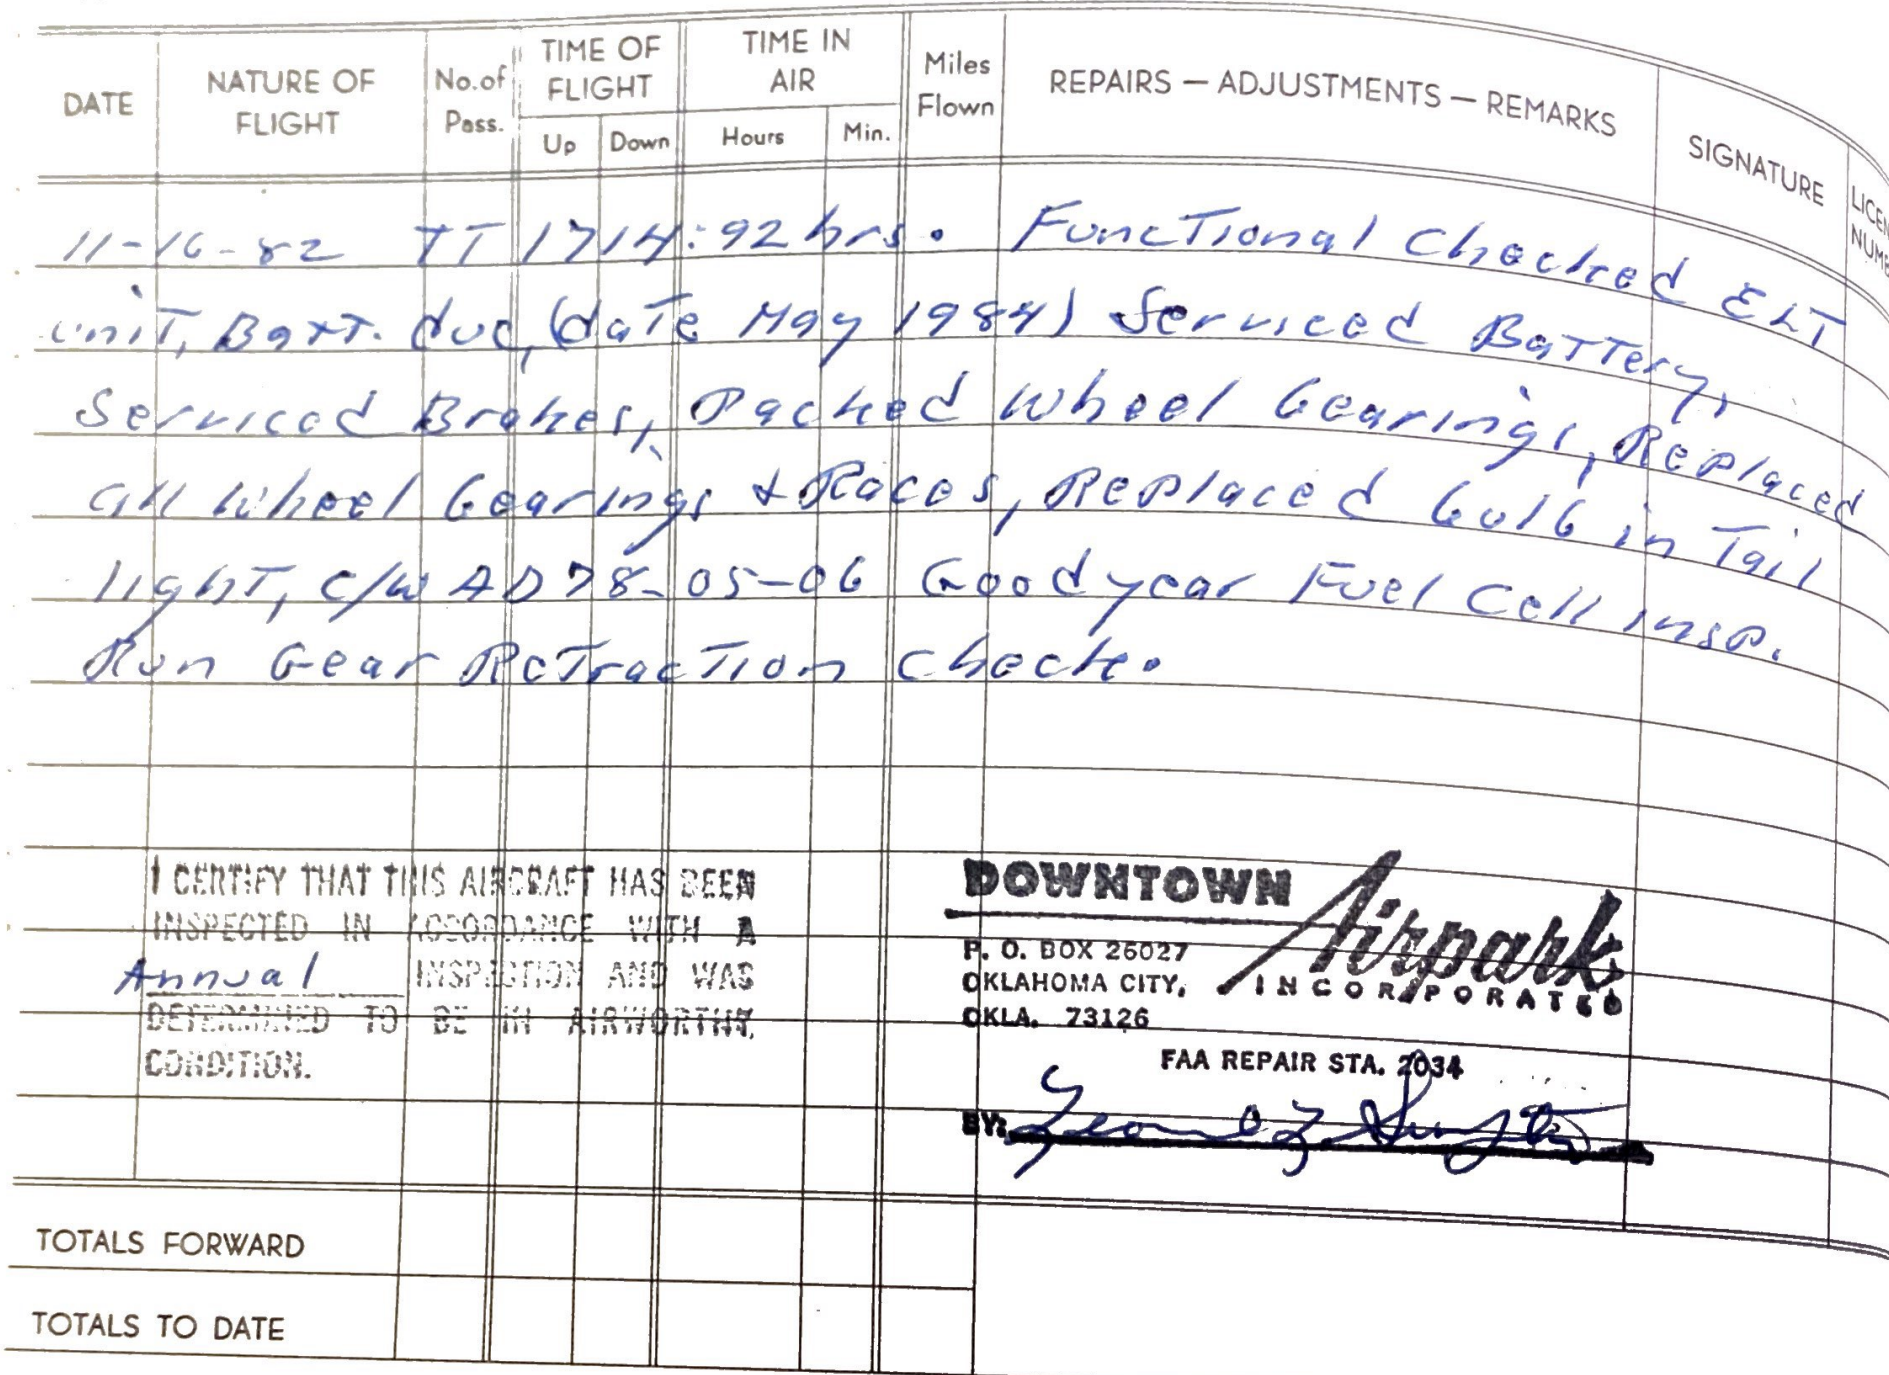 DATE NATURE OF FLIGHT No. of Pass. TIME OF FLIGHT Up Down TIME IN AIR Hours Min. Miles Flown REPAIRS — ADJUSTMENTS — REMARKS SIGNATURE
11-16-82 TT 1714:92 hrs. Functional Checked ELT
unit, Batt. due, (date May 1984) Serviced Battery,
Serviced Brakes, Packed Wheel bearings, Replaced
all wheel bearings & Races, Replaced bulb in Tail
light, c/w AD 78-05-06 Goodyear Fuel Cell insp.
Run Gear Retraction check.
I CERTIFY THAT THIS AIRCRAFT HAS BEEN
INSPECTED IN ACCORDANCE WITH A
Annual INSPECTION AND WAS
DETERMINED TO BE IN AIRWORTHY
CONDITION.
DOWNTOWN Airpark
INCORPORATED
P. O. BOX 26027
OKLAHOMA CITY,
OKLA. 73126
FAA REPAIR STA. 2034
BY:
TOTALS FORWARD
TOTALS TO DATE